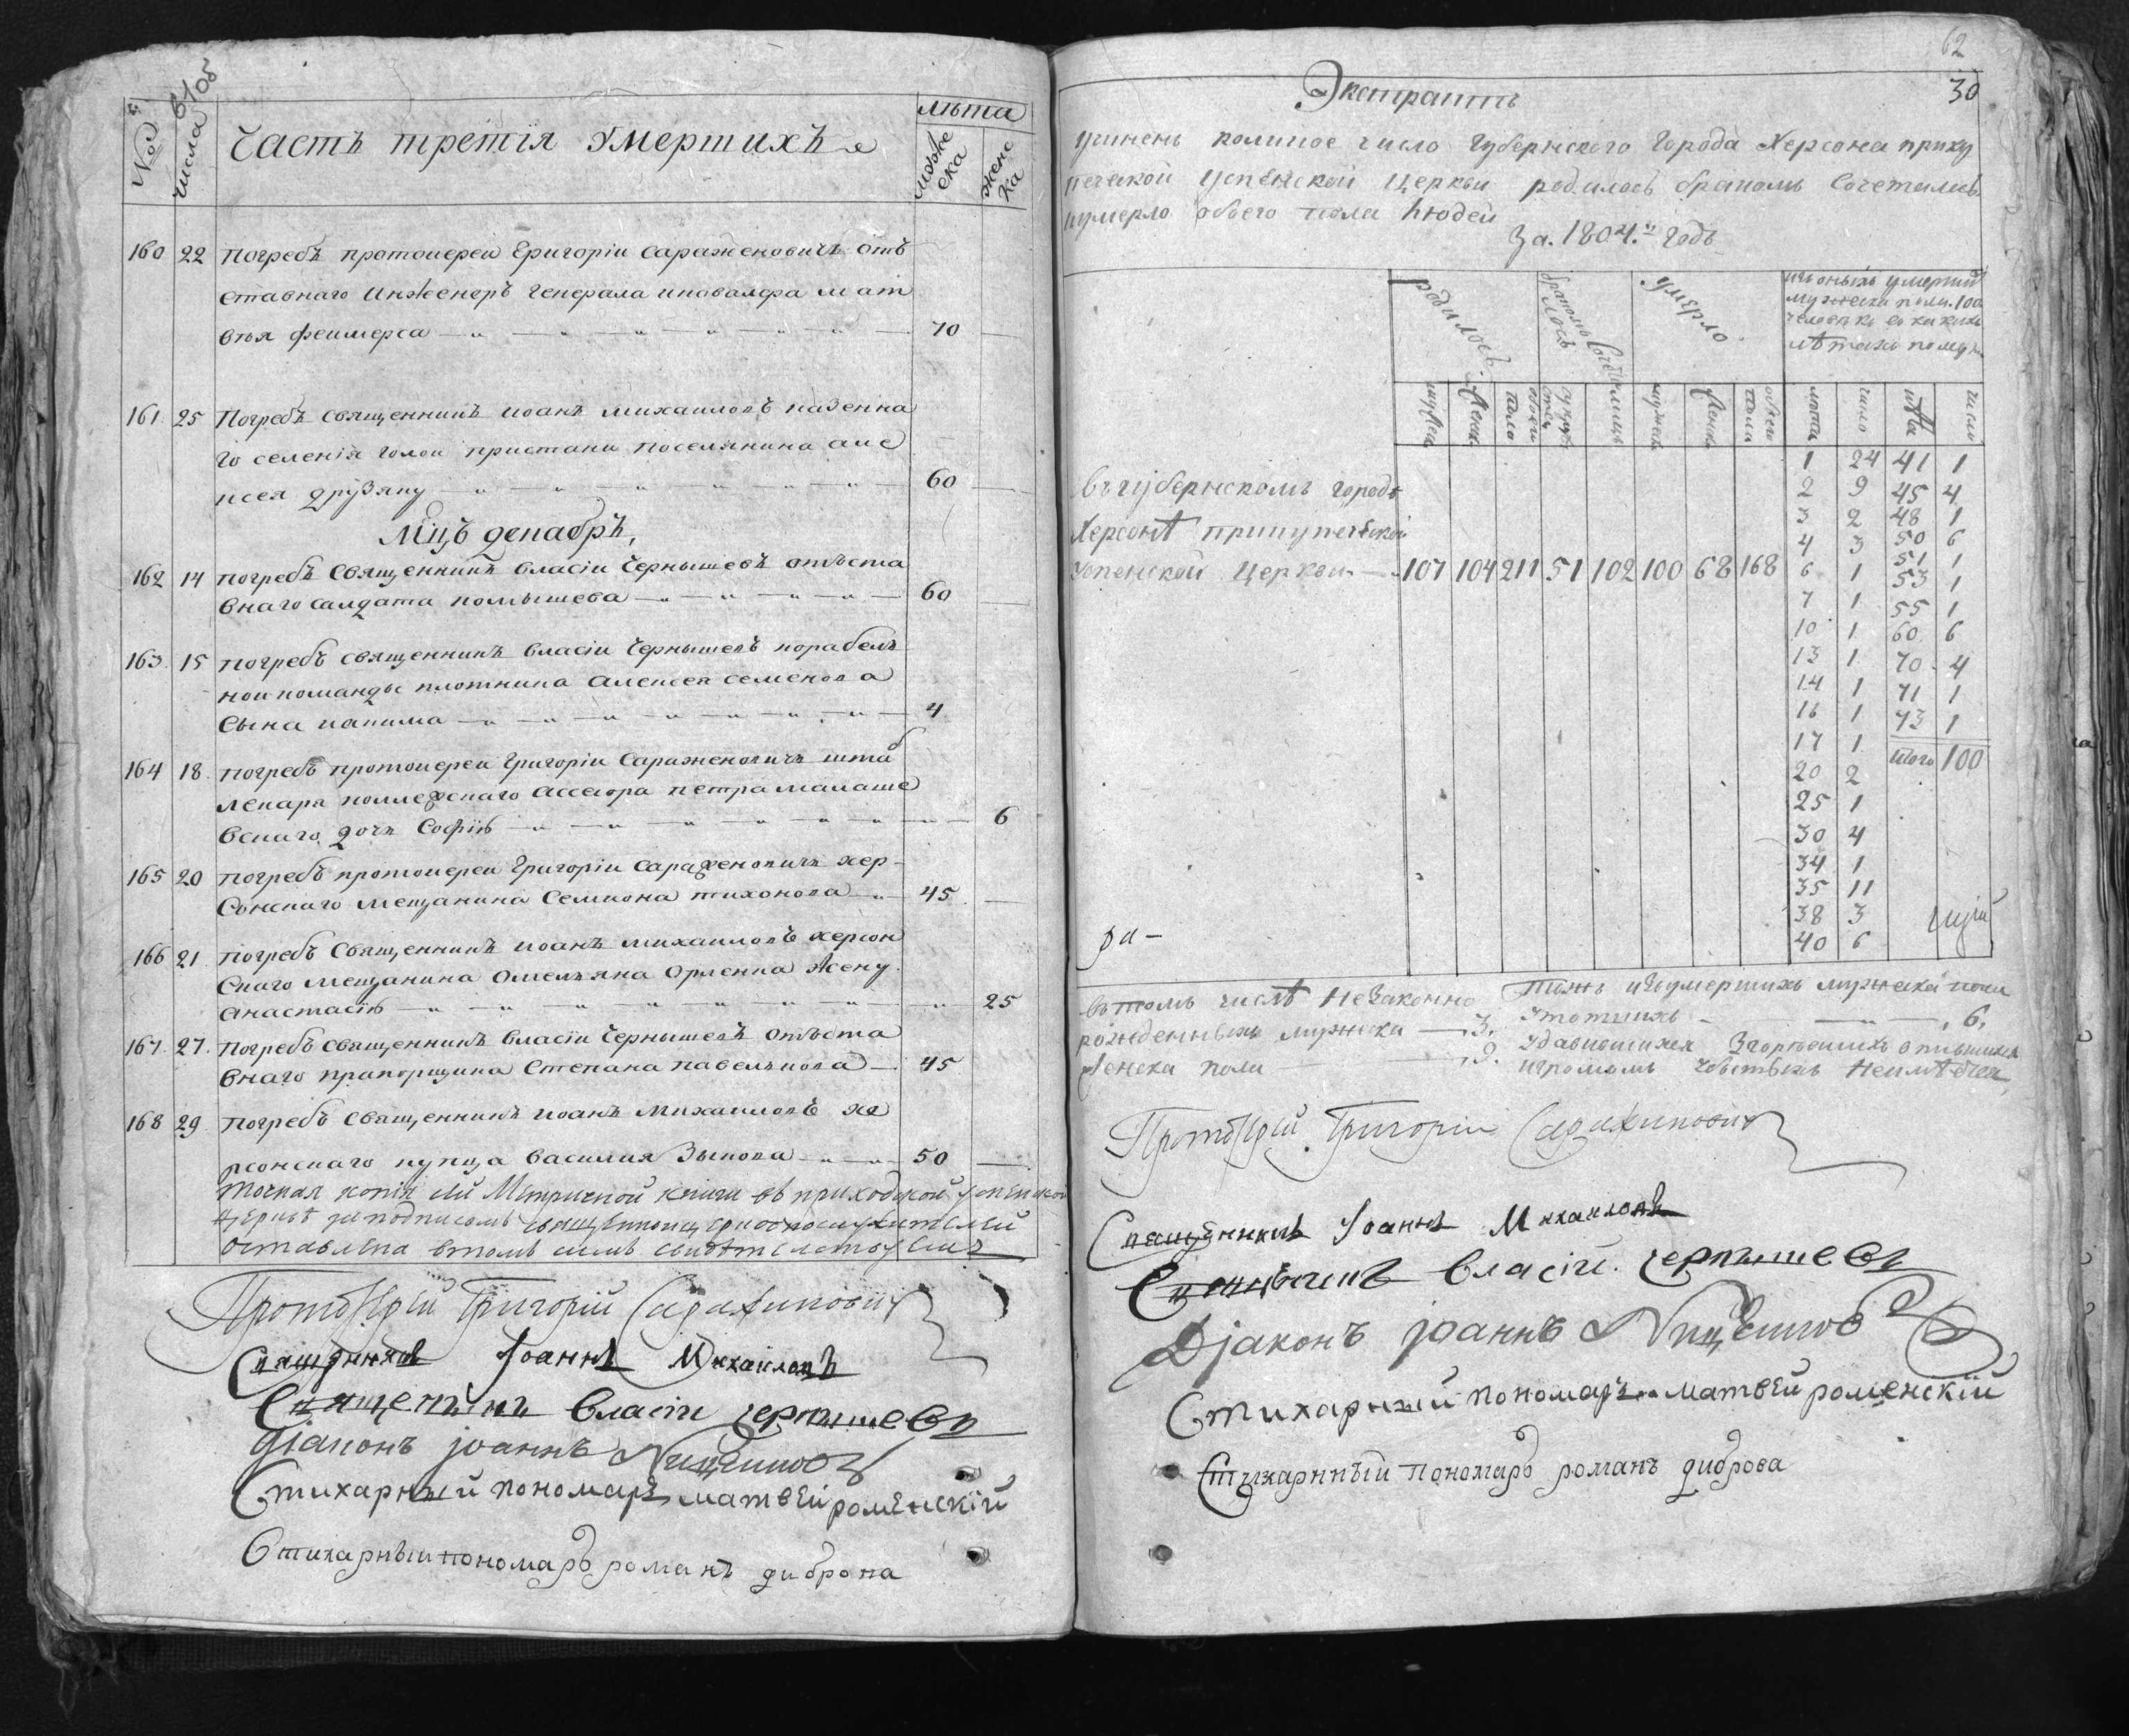 №
числа
Часть третїя Умершихъ
лѣта
мужеска
женска
160 22 погребъ протоиереи Григоріи сараженовичъ отъ
ставнаго инженеръ генерала инавалера мат
вѣя феимерса 70
161 25 Погребъ священникъ иоанъ михаиловъ казенна
го селенія голои пристани поселянина але
ксея друзяку 60
Мцъ декабръ,
162 14 погребъ Священникъ власіи Чернышевъ отъста
внаго салдата комышева 60
163 15 погребъ священникъ власіи Чернышевъ корабель
нои команды плотника алексея семенова
сына иакима 4
164 18 погребъ протоиереи Григоріи Сараженовичъ штаб
лекаря коллежскаго ассесора петра малаше
вскаго дочь Софію 6
165 20 погребъ протоиереи Григоріи Сараженовичъ хер-
сонскаго мещанина Семиона тихонова 45
166 21 погребъ Священникъ иоанъ михаиловъ херсон
скаго мещанина Омельяна Орленка жену
анастасію 25
167 27 погребъ священникъ власіи Чернышевъ отъста
внаго прапорщика Степана павелькова 45
168 29 погребъ священникъ иоанъ михаиловъ хе
рсонскаго купца василия Зыкова 50
точная копія сей Метричной книги въ приходской успенской
церквѣ за подписомъ священноцерковнослужителей
оставлена втомъ симъ свидѣтельствуемъ
Протоіерей Григорій Сараженовичъ
Священникъ Іоаннъ Михаиловъ
Священникъ власіи чернышевъ
діаконъ іоаннъ
Стихарный пономарь матвей роменскій
Стихарныи пономарь романъ диброва
62
30
Экстрактъ
учиненъ коликое число Губернского Города Херсона прику
печеской Успенской Церкви родилось бракомъ Сочетались
иумерло обоего пола людей
За 1804.й годъ
родилось
бракомъ сочеталось
умерло
изъ оныхъ умерший
мужеска пола 100
человекъ въ какихъ
лѣтахъ
мужеск женск обоего пола лицъ мужеск женск обоего пола лѣта число лѣта число
въ губернскомъ городѣ
Херсонѣ прикупеческой
Успенской Церкви 107 104 211 51 102 100 68 168
1 24 41 1
2 9 45 4
3 2 48 1
4 3 50 6
6 1 51 1
7 1 53 1
10 1 55 1
13 1 60 6
14 1 70 4
16 1 71 1
17 1 73 1
20 2 итого 100
25 1
30 4
34 1
35 11
38 3
40 6
ра-
вътомъ числѣ незаконно
рожденныхъ мужеска 3.
женска пола 9.
изъумершихъ мужеска пола
Утопшихъ 6,
Удавившихся Згоревшихъ опившихся
игромомъ убитыхъ неимѣется
Протоіерей Григорій Сараженовичъ
Священникъ Іоаннъ Михаиловъ
Священникъ власіи чернышевъ
Діаконъ іоаннъ
Стихарный пономарь матвей роменскій
Стихарнный пономарь романъ диброва